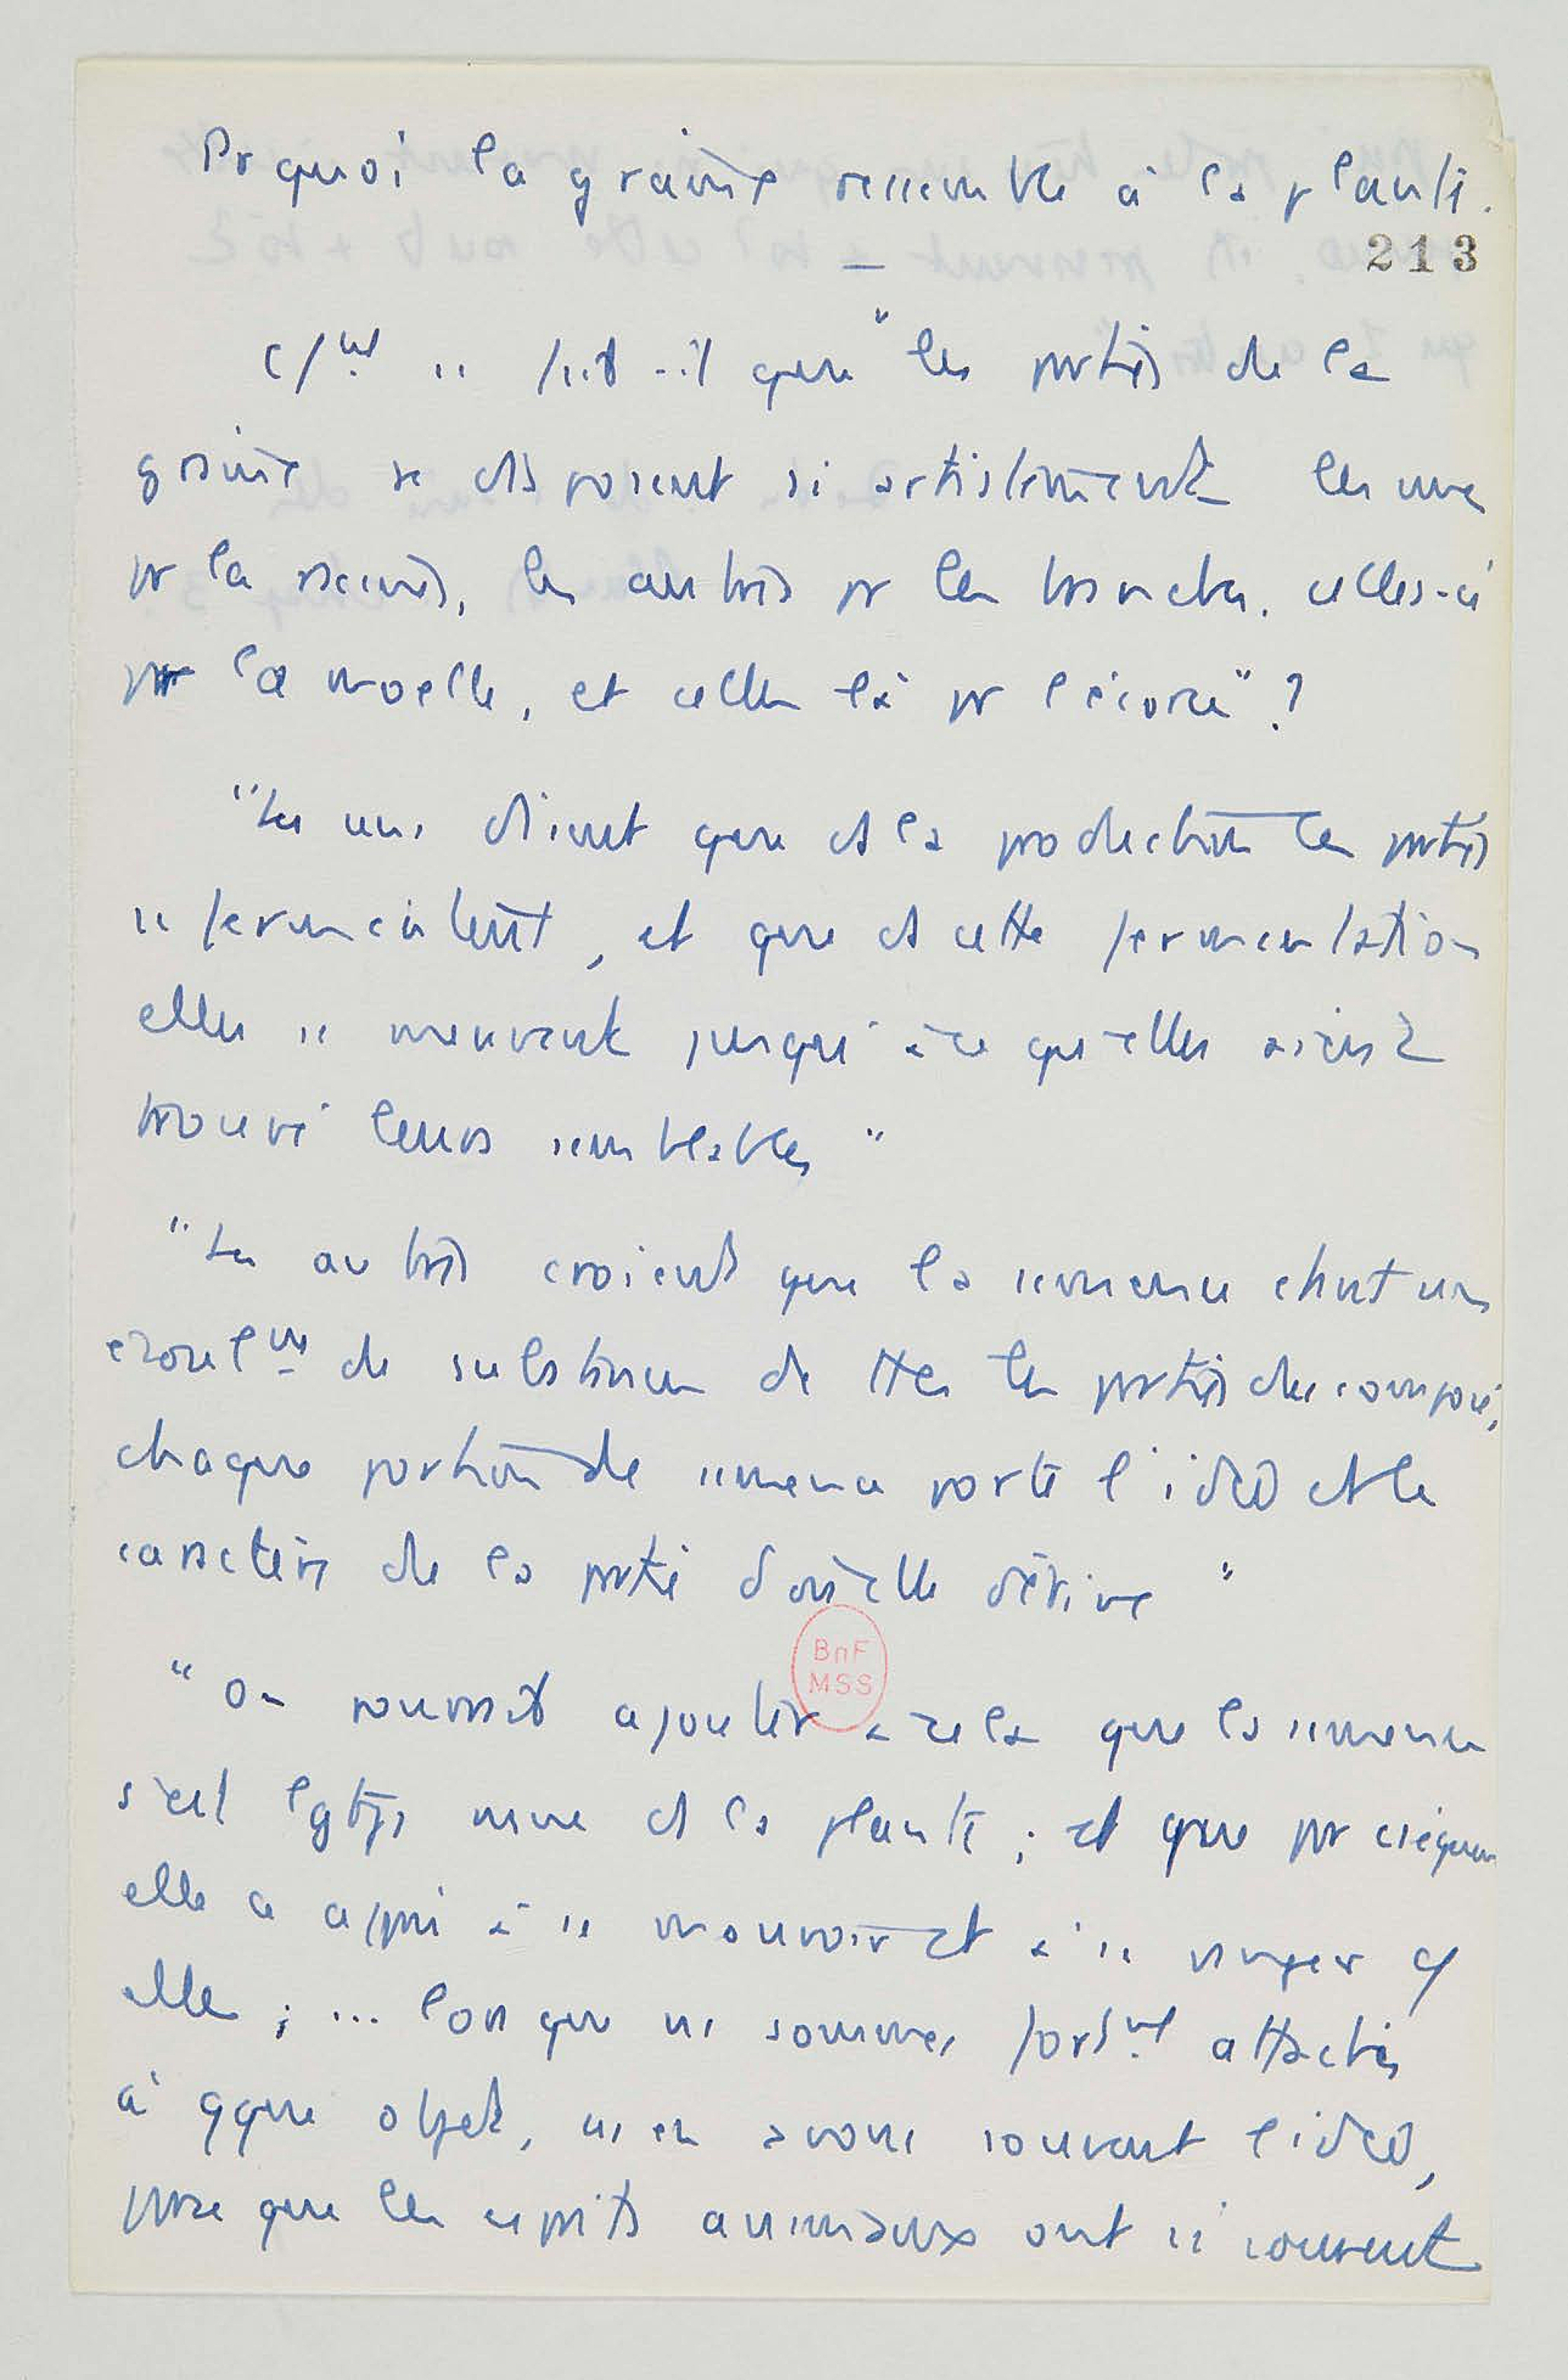 Prquoi la graine ressemble à la plante.
213
Cmt se fait-il que "les parties de la
graine se disposent si artistement les unes
pr la racine, les autres pr les branches. celles-ci
pr la moelle, et celles là pr l'écorce" ?
"Les uns disent que ds la production les parties
se fermentent, et que ds cette fermentation
elles se meuvent jusqu'à ce qu'elles aient
trouvé leurs semblables"
"Les autres croient que la semence étant un
écoulmt de substance de ttes les parties du composé,
chaque portion de semence porte l'idée et le
caractère de la partie d'où elle dérive"
"On pourrait ajouter à cela que la semence
s'est lgtps mue ds la plante ; et que pr
elle a appris à se mouvoir et à se ranger
elle ; ... lorsque ns sommes fortmt attachés
à qque objet, ns en avons souvent l'idée,
parce que les esprits animaux ont si souvent
BnF
MSS